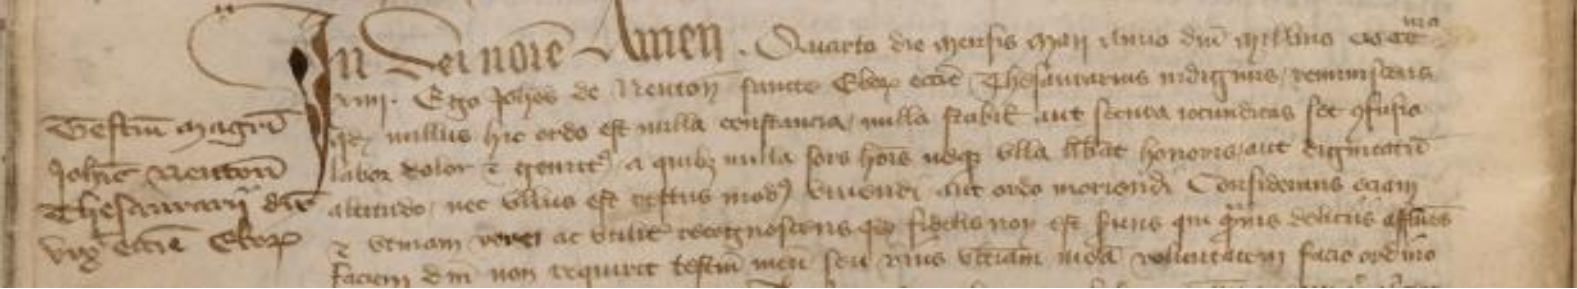 In Dei noie Amen . Quarto die mensis Maii Anno dni Millimo cccc ma
xiiij. Ego Johes de Neuton sancte Ebor eccie Thesaurarius indignus, reminiscens
qd nullus hic ordo est nulla constancia, nulla stabil aut secura iocunditas set confusio
labor dolor & gemit a quibz nulla sors hois neqz ulla libat honoris, aut dignitatis
altitudo, nec ullus est certus modus vivendi aut ordo moriendi Considerans eciam
& utinam vere ac utilit recognoscens qd fidelis non est servus qui deliciis affluens
faciem dni non requirit testm meu seu ultiam mea voluntatem facio ordino
Testm magri
Johis Neuton
Thesaurarij
eccie Ebor